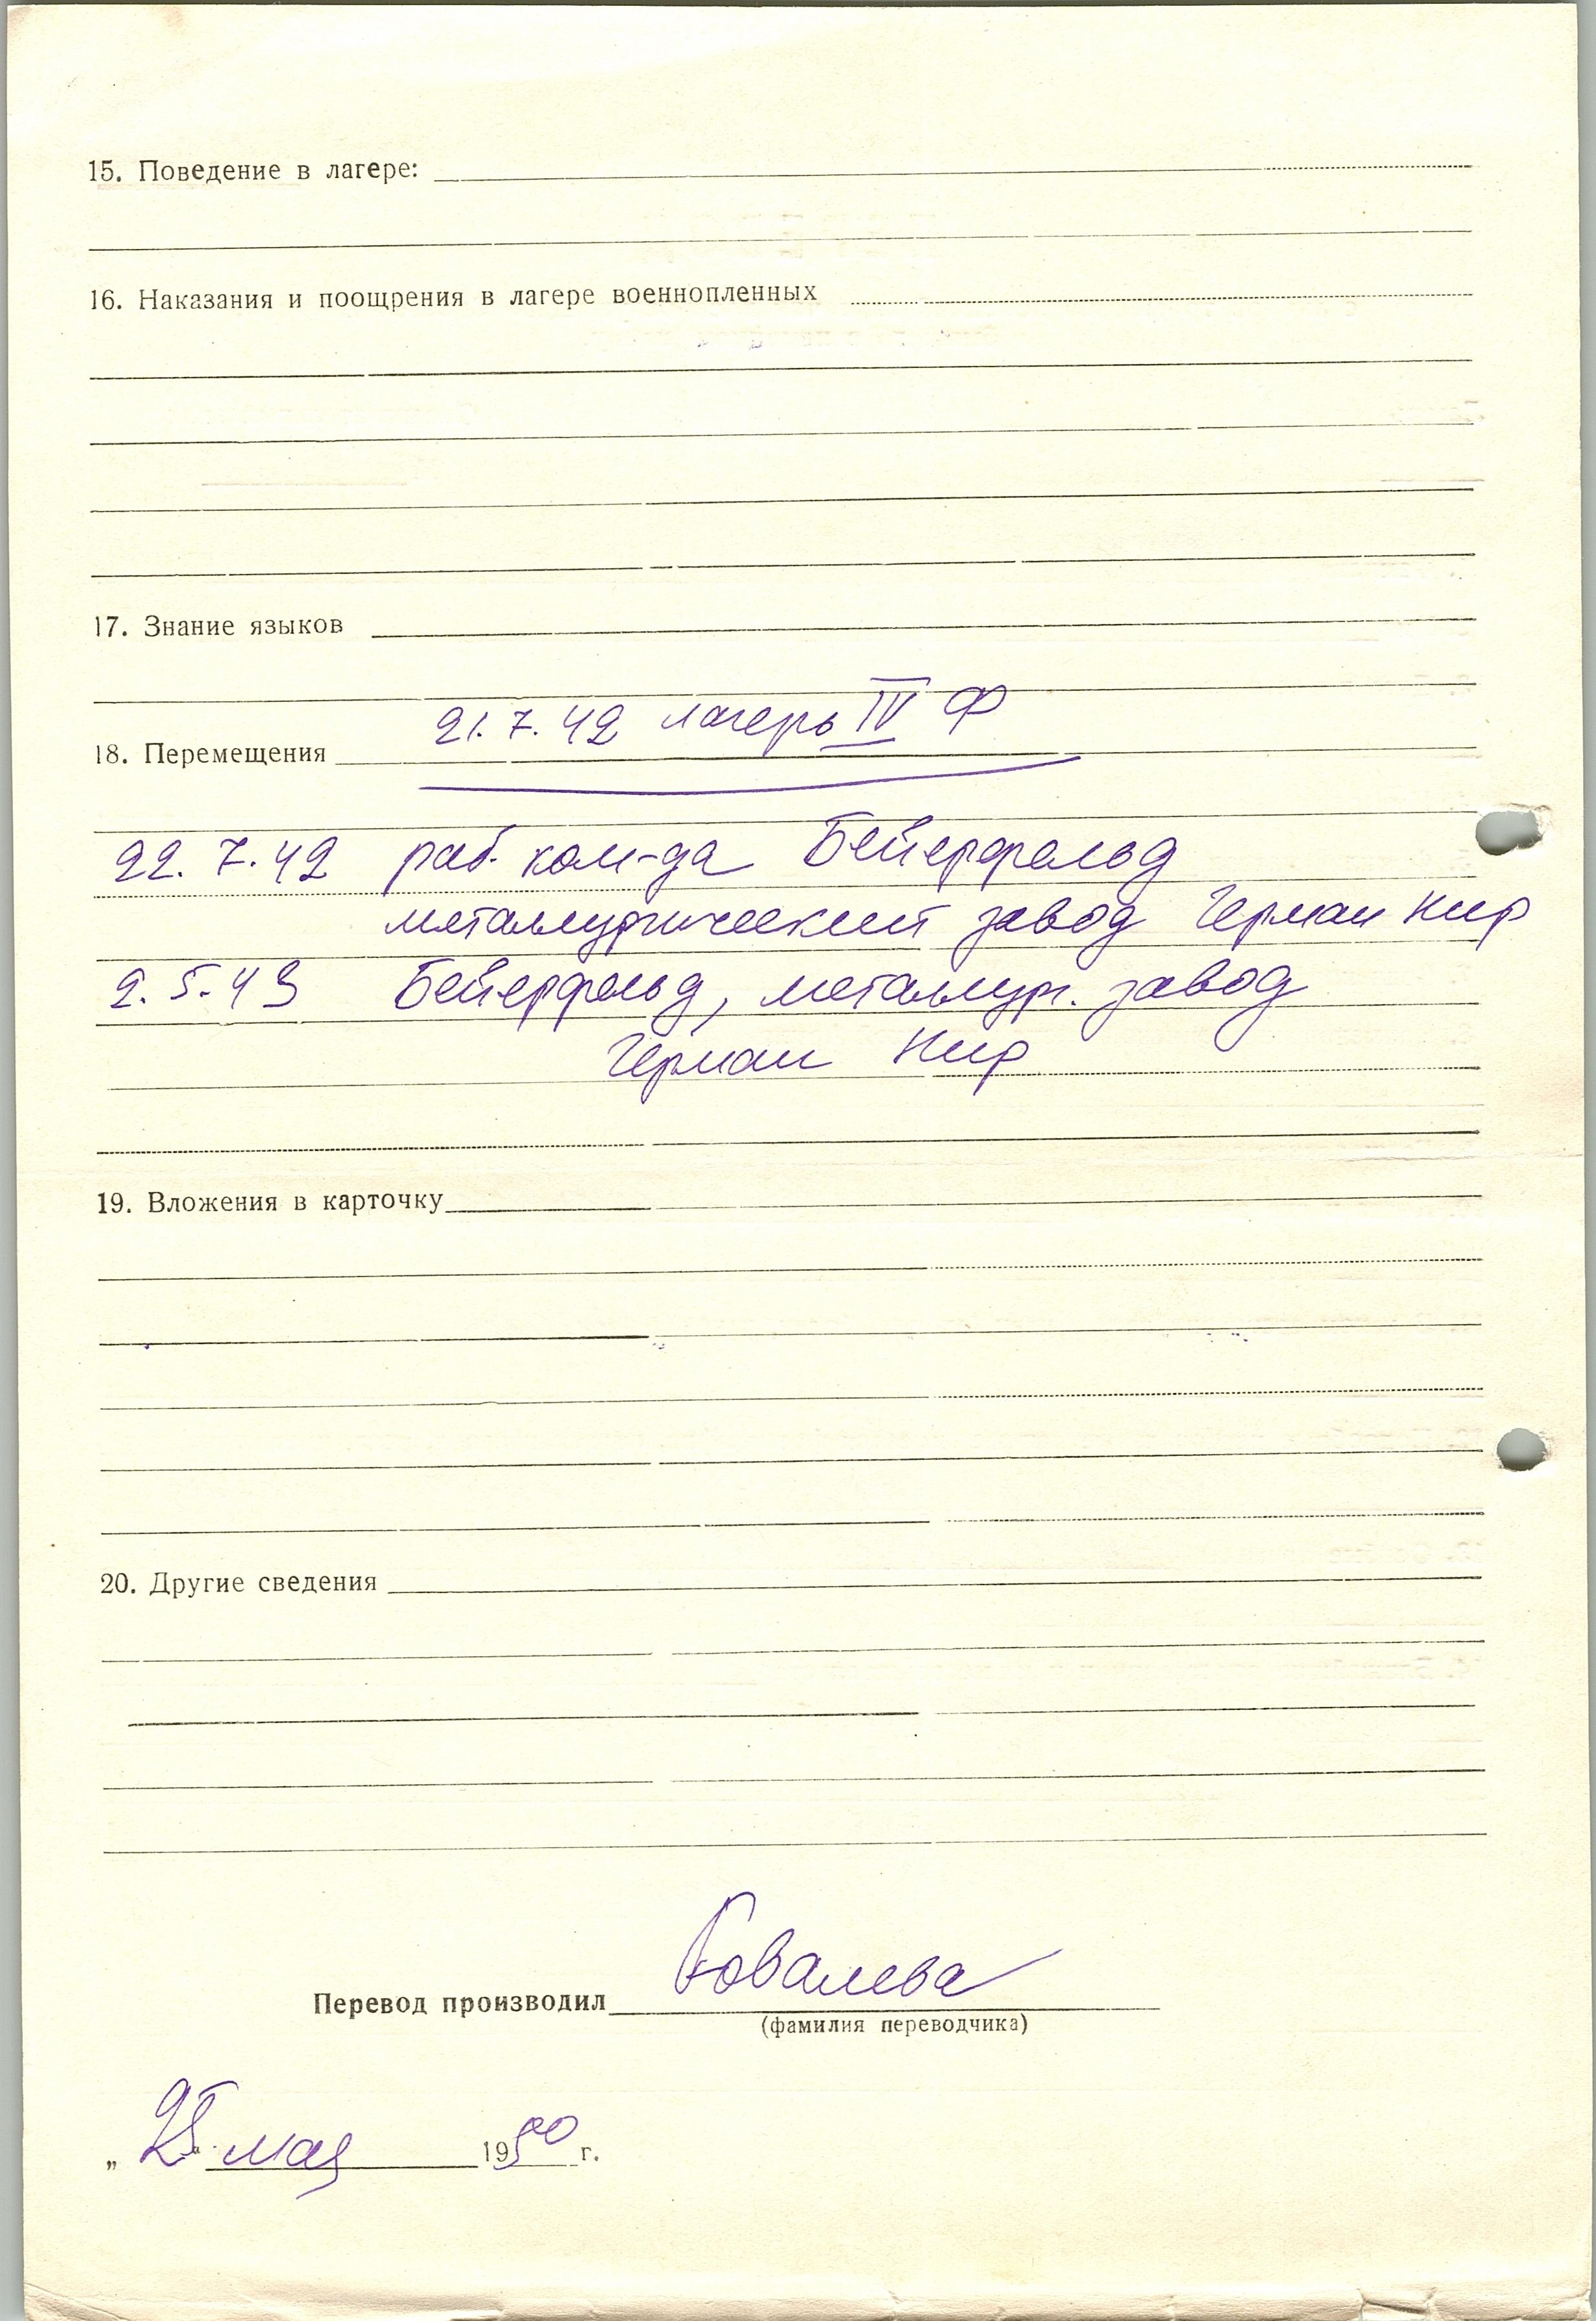 15. Поведение в лагере:
16. Наказания и поощрения в лагере военнопленных
17. Знание языков
21.7.42 лагерь IV Ф
18. Перемещения
22.7.42 раб. ком-да Бейерфельд
металлургический завод Герман Нир
2.5.43 Бейерфельд, металлург. завод
Герман Нир
19. Вложения в карточку
20. Другие сведения
Перевод производил Ковалева
(фамилия переводчика)
„25“ мая 1950 г.